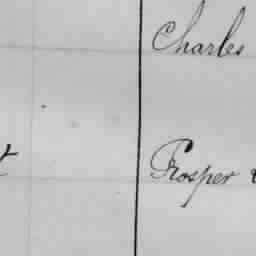 Charles
Prosper